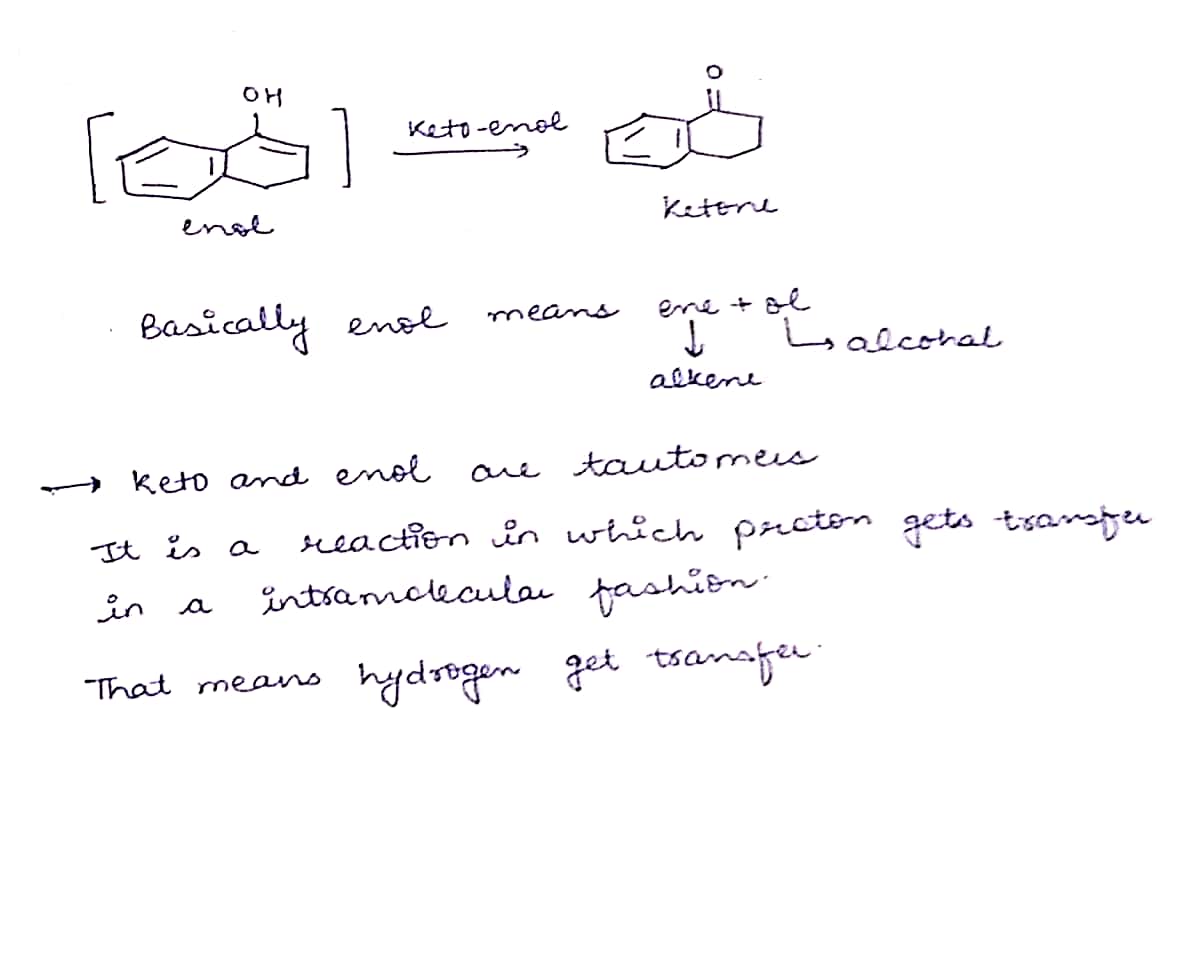 OH
O
Keto-enol
enol
Ketone
Basically enol means ene + ol
alcohal
alkene
→ Keto and enol are tautomers
It is a reaction in which proton gets transfer
in a intramolecular fashion.
That means hydrogen get transfer.